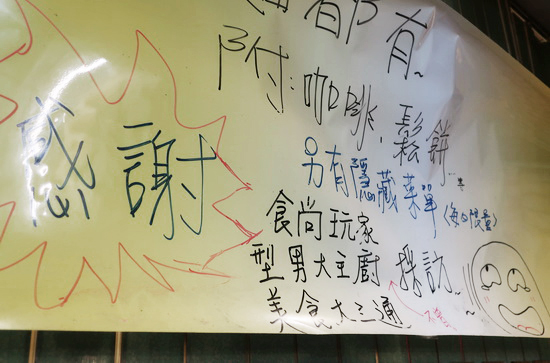 都有~
附:咖啡,鬆餅...
另有隱藏菜單(每日限量)
感謝
食尚玩家
型男大主廚 採訪...
美食大三通